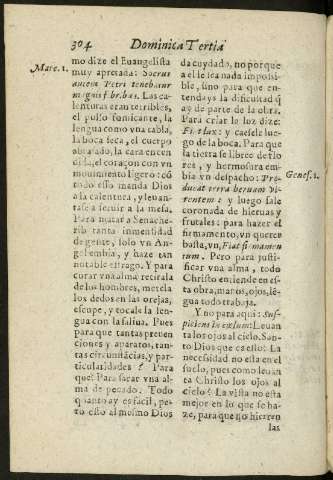 304 Dominica Tertia
Marc. 1.
mo dize el Euangelista
muy apretada: Socrus
autem Petri tenebatur
magnis febribus. Las ca-
lenturas eran terribles,
el pulso formicante, la
lengua como vna tabla,
la boca seca, el cuerpo
la cara encen
dida, el coraçon con vn
mouimiento ligero: có
todo esso manda Dios
a la calentura, y leuan-
tase a seruir a la mesa.
Para matar a Senache-
rib tanta inmensidad
de gente, solo vn An-
gel embia, y haze tan
notable estrago. Y para
curar vna alma retirala
de los hombres, metela
los dedos en las orejas,
escupe, y tocale la len-
gua con la saliua. Pues
para que tantas preuen
ciones y aparatos, tan-
tas circunstãcias, y par-
ticularidades? Para
que? Para sacar vna al-
ma de pecado. Todo
quanto ay es facil, pe-
ro esto al mesmo Dios
da cuydado, no porque
a el le sea nada imposi-
ble, sino para que en-
tendays la dificultad q̃
ay de parte de la obra.
Para criar la luz dize:
Fiat lux: y caesele lue-
go de la boca. Para que
la tierra se libree de flo
res, y hermosura em-
bia vn despacho: Pro-
ducat terra herbam vi-
rentem: y luego sale
coronada de hieruas y
frutales: para hazer el
firmamento, vn querer
basta, vn, Fiat firmamen
tum. Pero para justi-
ficar vna alma, todo
Christo entiende en es-
ta obra, manos, ojos, lẽ
gua todo trabaja.
Genes. 1.
Y no para aqui: Sus-
piciens in cælum: Leuan
ta los ojos al cielo. San-
to Dios que es esto? La
necessidad no esta en el
suelo, pues como leuan
ta Christo los ojos al
cielo? La vista no esta
mejor en lo que se ha-
ze, para que no hierren
las